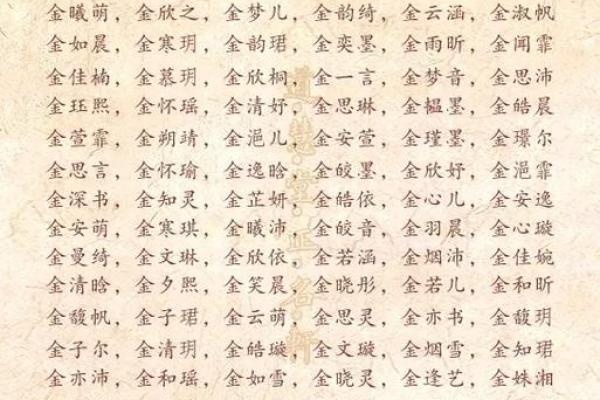 金曦萌，金欣之，金梦儿，金韵绮，金云涵，金淑帆
金如晨，金寒玥，金韵珺，金奕墨，金雨昕，金闻霏
金佳楠，金慕玥，金欣桐，金一言，金梦音，金思沛
金珏熙，金怀瑶，金清妤，金思琳，金韫墨，金皓晨
金萱霏，金朔靖，金浥儿，金安萱，金瑾墨，金璟尔
金思言，金怀瑜，金逸晗，金皎墨，金欣妤，金浥霏
金深书，金知灵，金芷妍，金皓依，金心儿，金安逸
金安萌，金寒琪，金曦沛，金皎音，金羽晨，金心璇
金曼绮，金文琳，金欣依，金若涵，金烟沛，金佳婉
金清晗，金夕熙，金笑晨，金晓彤，金若儿，金和昕
金馥帆，金子珺，金云萌，金思灵，金亦书，金馥玥
金子尔，金清玥，金皓璇，金文璇，金烟雪，金知珺
金亦沛，金和瑶，金如雪，金晓灵，金逢艺，金姝湘